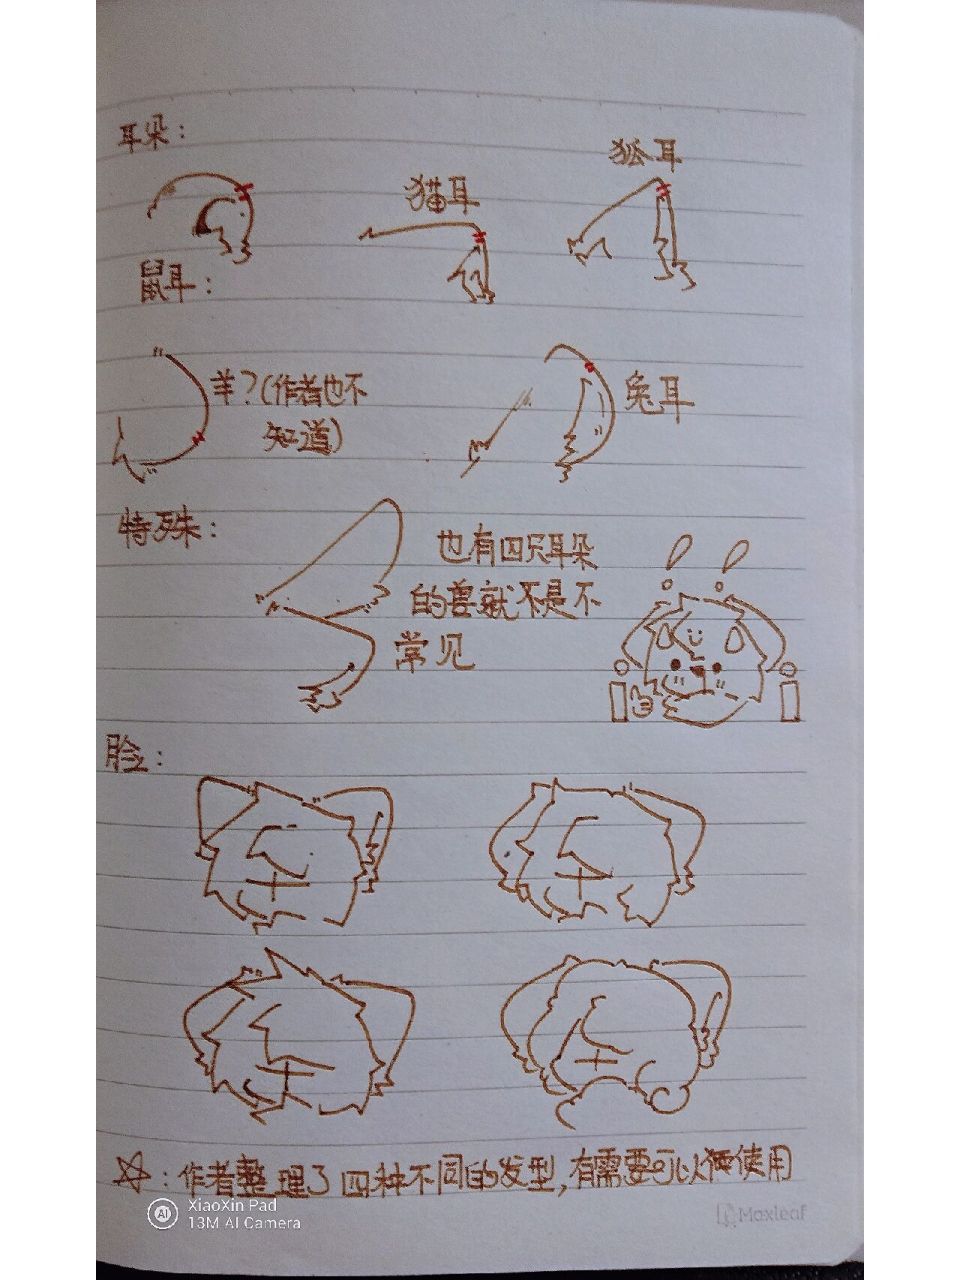 耳朵：
狐耳
猫耳
鼠耳：
羊？(作者也不
知道)
兔耳
特殊：
也有四只耳朵
的兽就不是不
常见
脸：
☆：作者整理了四种不同的发型,有需要可以使用
AI
XiaoXin Pad
13M AI Camera
Maxleaf